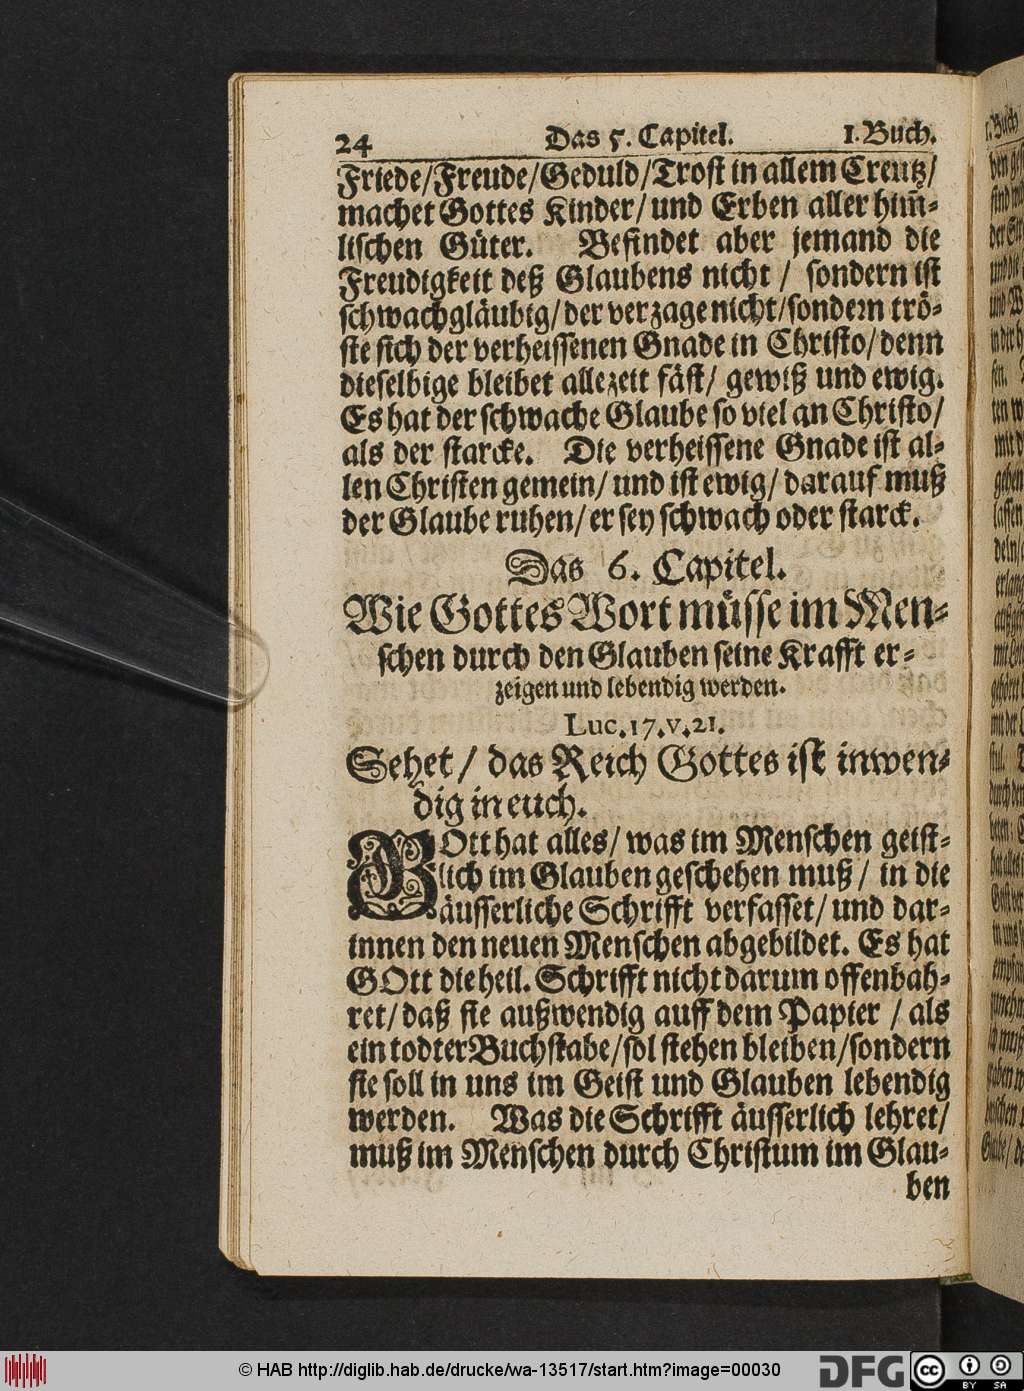 24 Das 5. Capitel. I. Buch.
Friede/Freude/Geduld/Trost in allem Creutz/
machet Gottes Kinder/ und Erben aller him̃-
lischen Güter. Befindet aber jemand die
Freudigkeit deß Glaubens nicht / sondern ist
schwachgläubig/ der verzage nicht/sondern trö-
ste sich der verheissenen Gnade in Christo/ denn
dieselbige bleibet allezeit fäst/ gewiß und ewig.
Es hat der schwache Glaube so viel an Christo/
als der starcke. Die verheissene Gnade ist al-
len Christen gemein/ und ist ewig/ darauf muß
der Glaube ruhen/ er sey schwach oder starck.
Das 6. Capitel.
Wie Gottes Wort müsse im Men-
schen durch den Glauben seine Krafft er-
zeigen und lebendig werden.
Luc. 17. v. 21.
Sehet / das Reich Gottes ist inwen-
dig in euch.
GOtt hat alles/ was im Menschen geist-
lich im Glauben geschehen muß / in die
äusserliche Schrifft verfasset/ und dar-
innen den neuen Menschen abgebildet. Es hat
GOtt die heil. Schrifft nicht darum offenbah-
ret/ daß sie außwendig auff dem Papier / als
ein todter Buchstabe/ sol stehen bleiben/sondern
sie soll in uns im Geist und Glauben lebendig
werden. Was die Schrifft äusserlich lehret/
muß im Menschen durch Christum im Glau-
ben
© HAB http://diglib.hab.de/drucke/wa-13517/start.htm?image=00030
DFG
cc BY SA